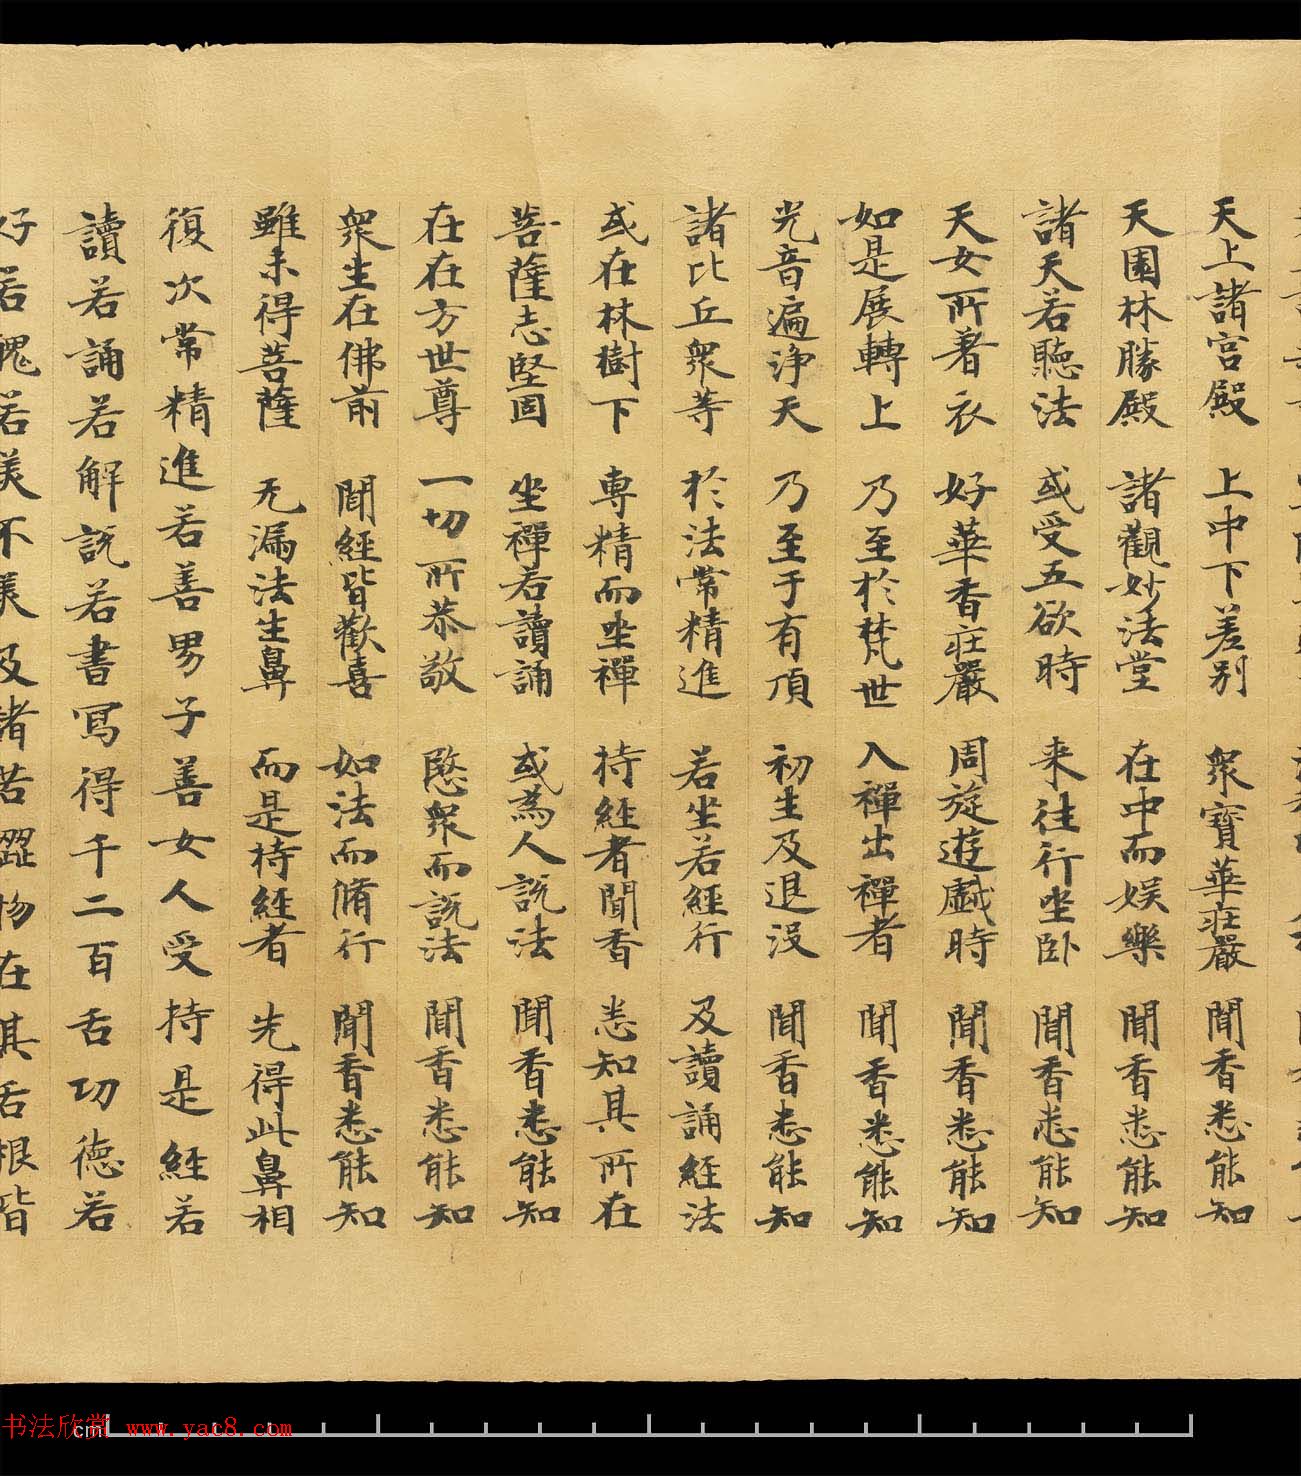 天上諸宮殿 上中下差別 衆寶華莊嚴 聞香悉能知
天園林勝殿 諸觀妙法堂 在中而娛樂 聞香悉能知
諸天若聽法 或受五欲時 来往行坐卧 聞香悉能知
天女所著衣 好華香莊嚴 周旋遊戲時 聞香悉能知
如是展轉上 乃至於梵世 入禪出禪者 聞香悉能知
光音遍淨天 乃至于有頂 初生及退沒 聞香悉能知
諸比丘衆等 於法常精進 若坐若經行 及讀誦經法
或在林樹下 專精而坐禪 持經者聞香 悉知其所在
菩薩志堅固 坐禪若讀誦 或為人説法 聞香悉能知
在在方世尊 一切所恭敬 愍衆而説法 聞香悉能知
衆生在佛前 聞經皆歡喜 如法而脩行 聞香悉能知
雖未得菩薩 无漏法生鼻 而是持經者 先得此鼻相
復次常精進若善男子善女人受持是經若
讀若誦若解説若書寫得千二百舌功德若
好若醜若美不美及諸苦澀物在其舌根皆
书法欣赏 www.yac8.com
cm